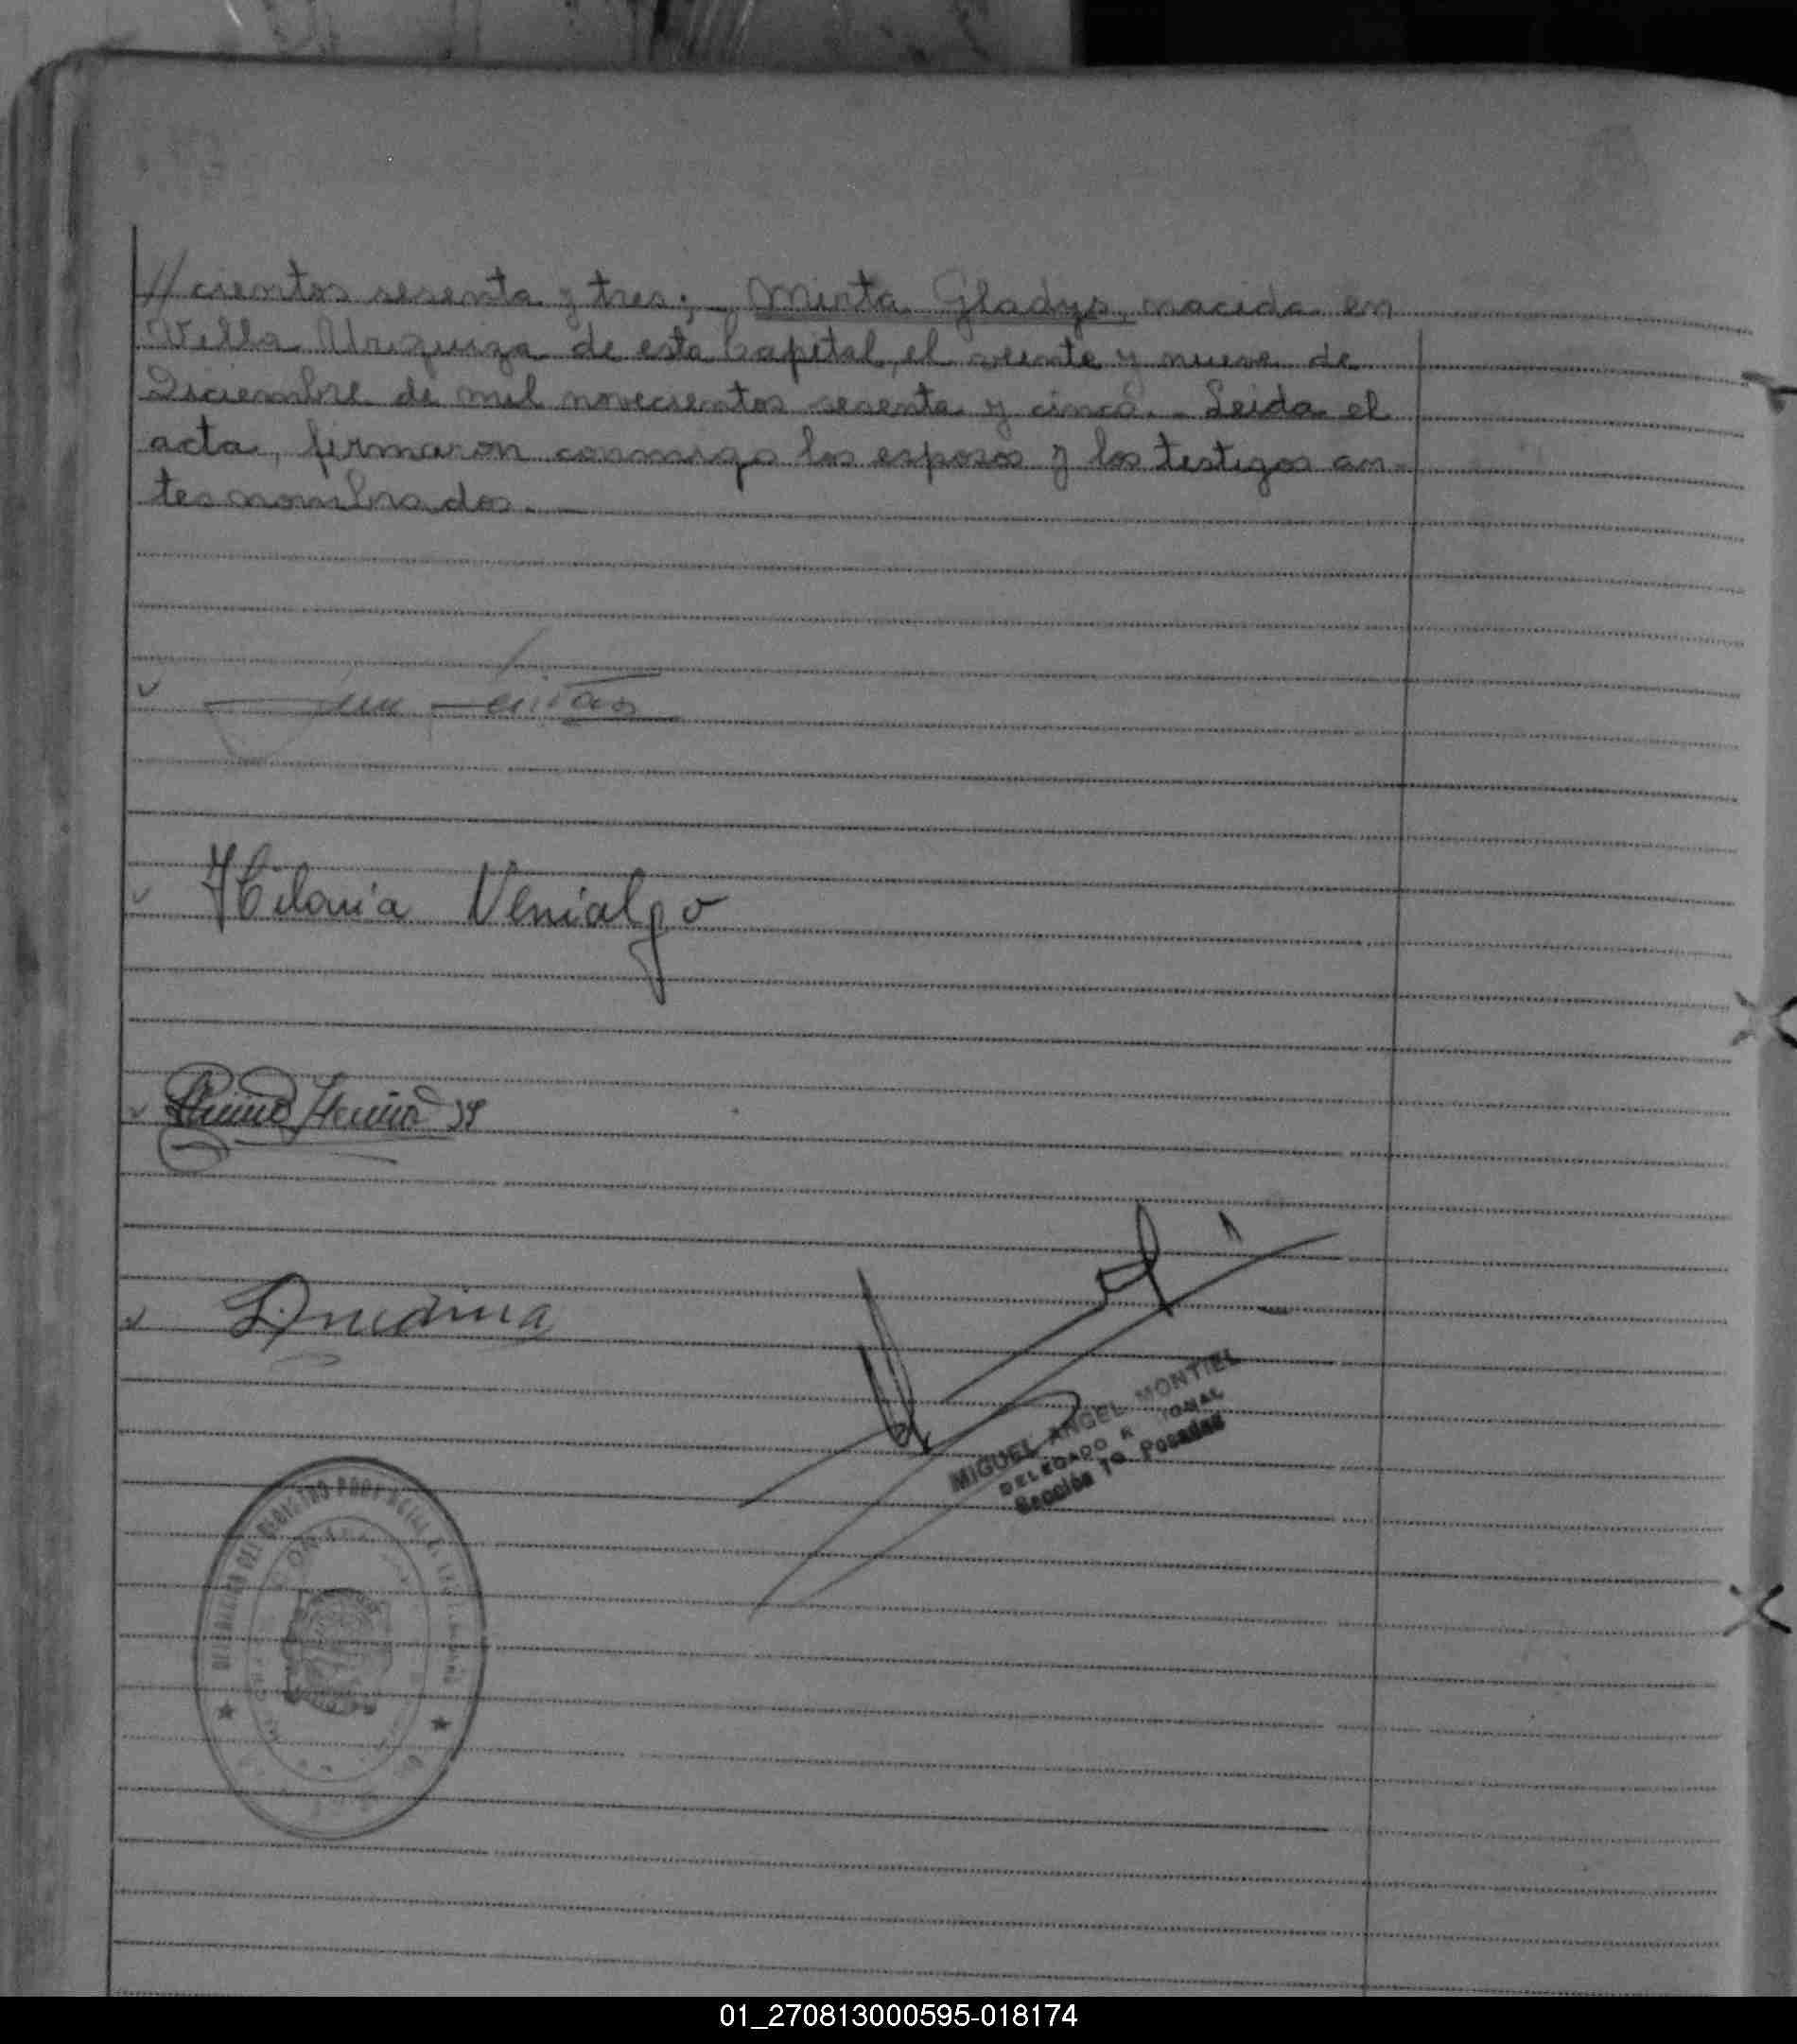 // cientos sesenta y tres; - Mirta Gladys, nacida en
Villa Urquiza de esta Capital, el veinte y nueve de
Diciembre de mil novecientos sesenta y cinco. - Leida el
acta, firmaron conmigo los esposos y los testigos an-
tes nombrados. -
Hilaria Venialgo
MIGUEL ANGEL MONTIEL
DELEGADO
Sección 1a Posadas
01_270813000595-018174